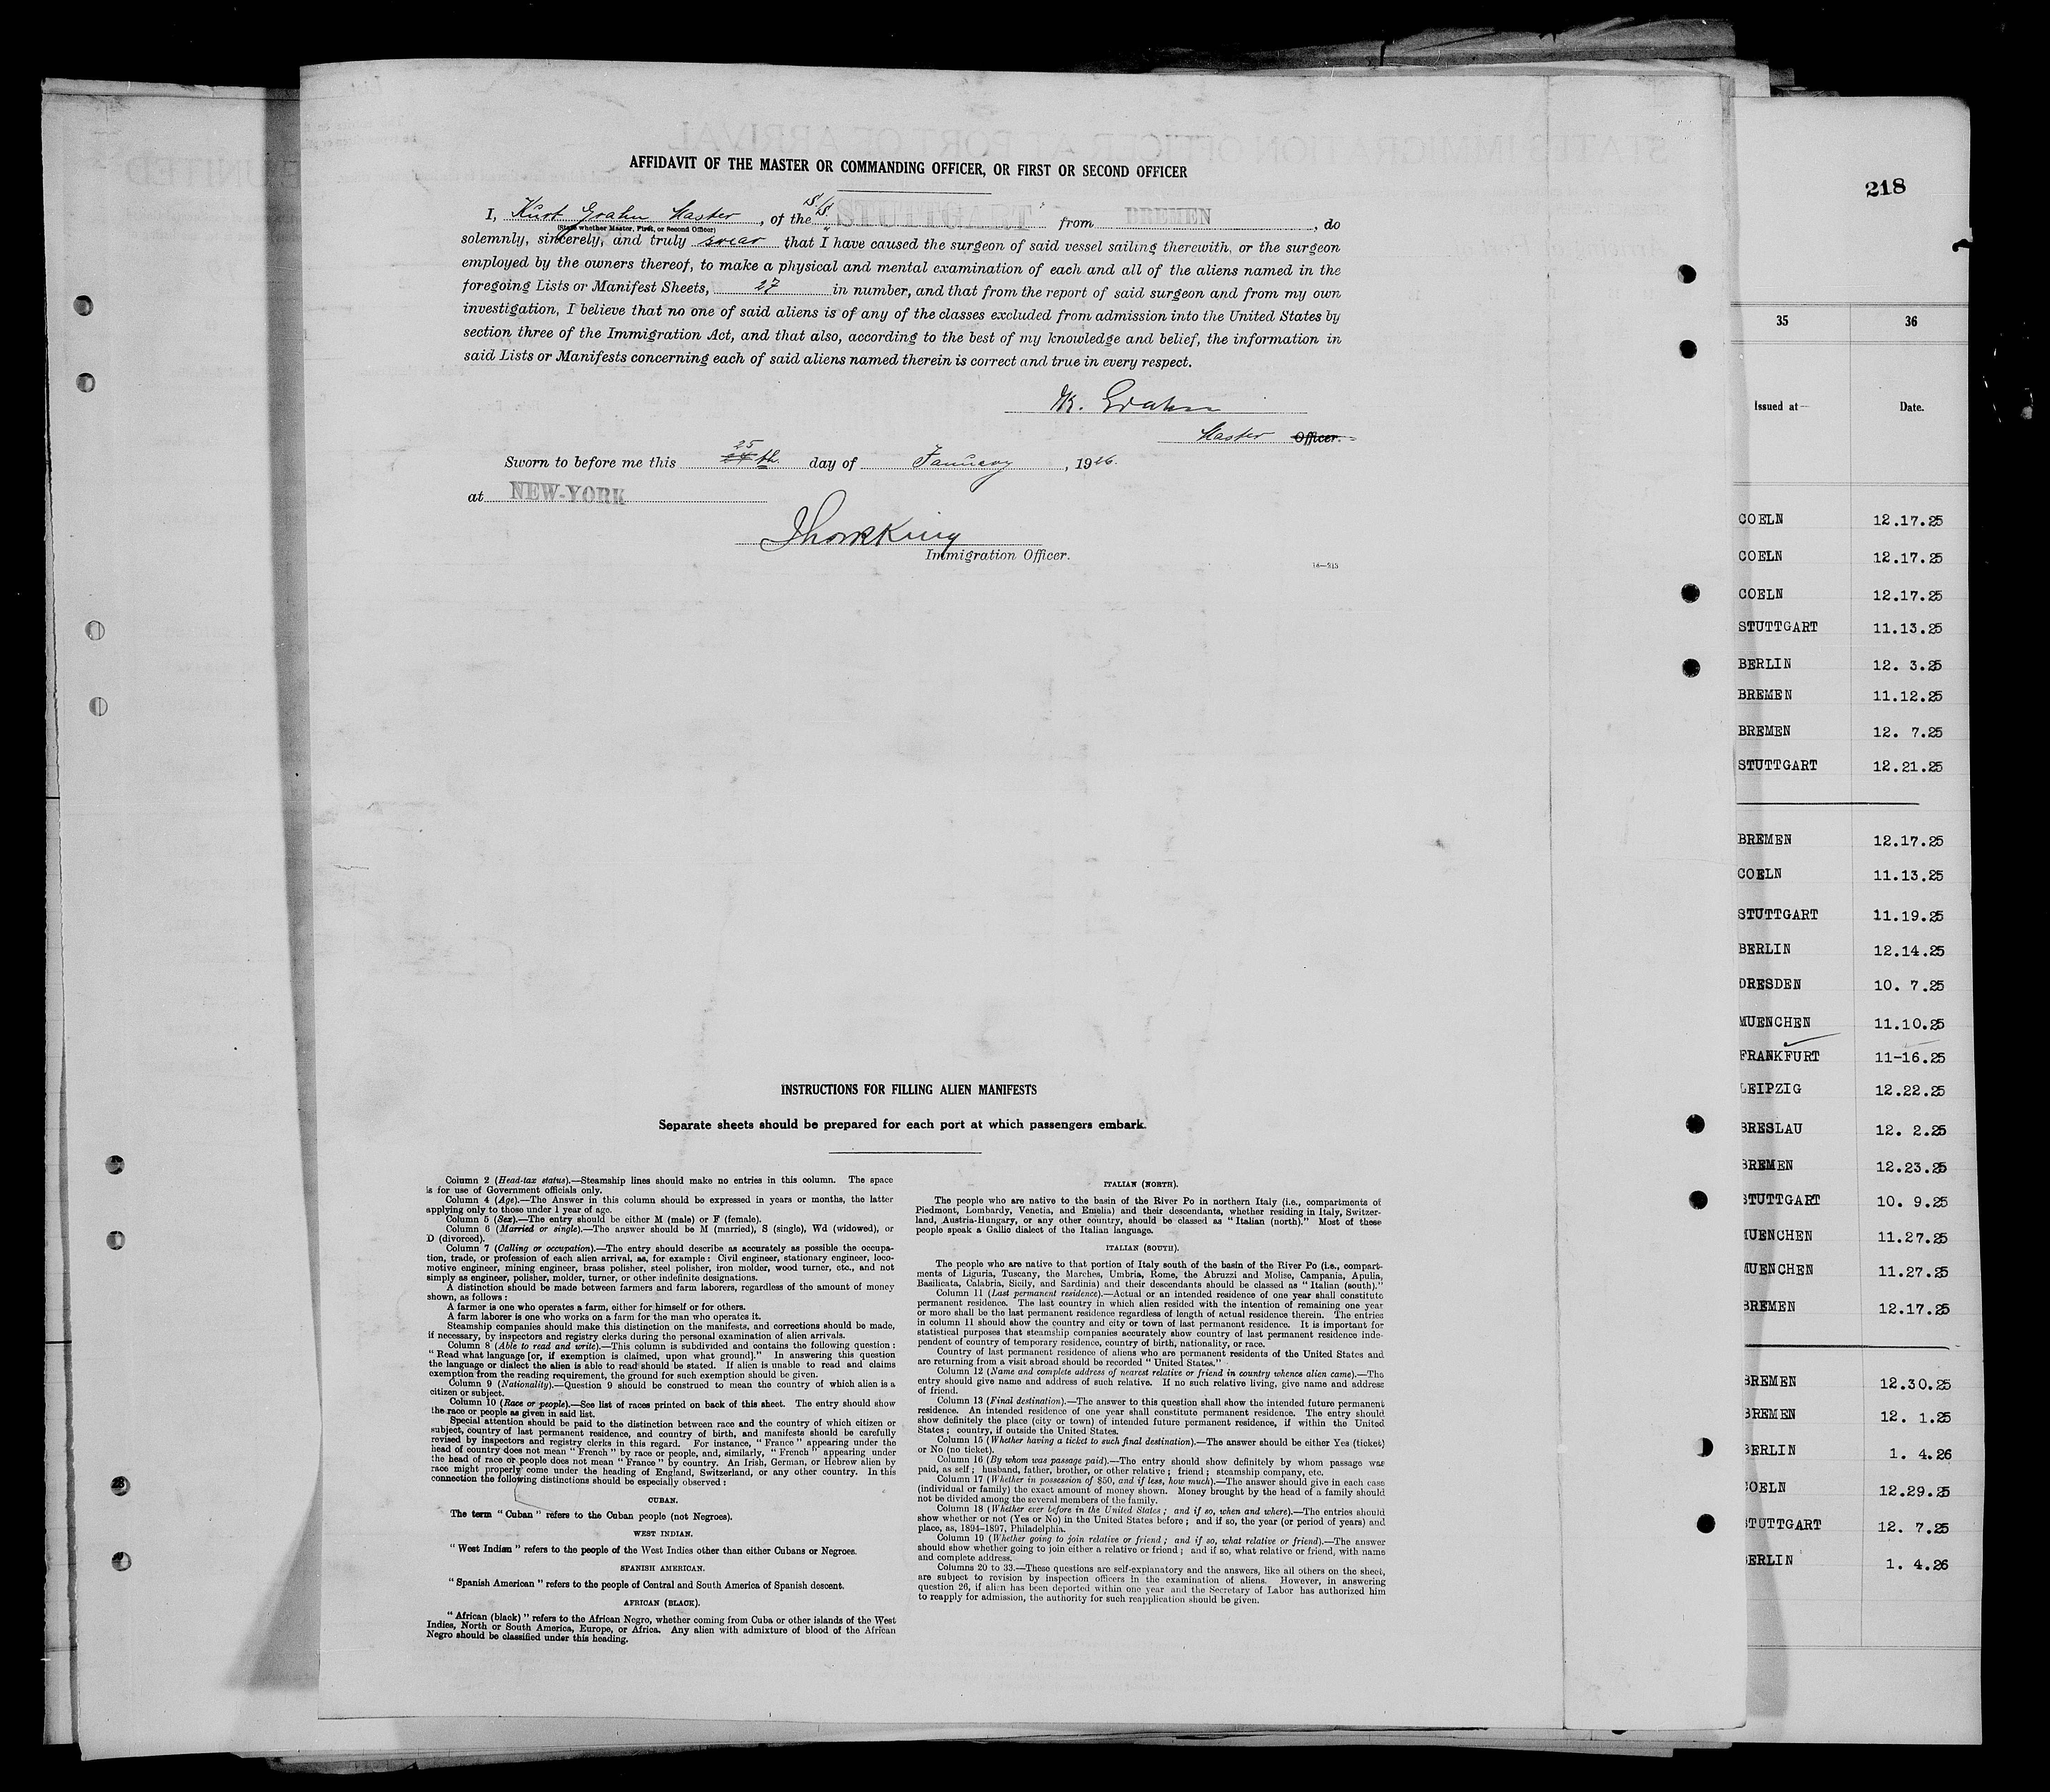 AFFIDAVIT OF THE MASTER OR COMMANDING OFFICER, OR FIRST OR SECOND OFFICER
I, Kurt Grahn Master, of the S/S. "STUTTGART" from BREMEN, do
(State whether Master, First, or Second Officer)
solemnly, sincerely, and truly swear that I have caused the surgeon of said vessel sailing therewith, or the surgeon
employed by the owners thereof, to make a physical and mental examination of each and all of the aliens named in the
foregoing Lists or Manifest Sheets, 27 in number, and that from the report of said surgeon and from my own
investigation, I believe that no one of said aliens is of any of the classes excluded from admission into the United States by
section three of the Immigration Act, and that also, according to the best of my knowledge and belief, the information in
said Lists or Manifests concerning each of said aliens named therein is correct and true in every respect.
K. Grahn
Master Officer.
Sworn to before me this 25 th. day of January, 1926.
at NEW-YORK
Immigration Officer.
INSTRUCTIONS FOR FILLING ALIEN MANIFESTS
Separate sheets should be prepared for each port at which passengers embark.
Column 2 (Head-tax status).—Steamship lines should make no entries in this column. The space
is for use of Government officials only.
Column 4 (Age).—The Answer in this column should be expressed in years or months, the latter
applying only to those under 1 year of age.
Column 5 (Sex).—The entry should be either M (male) or F (female).
Column 6 (Married or single).—The answer should be M (married), S (single), Wd (widowed), or
D (divorced).
Column 7 (Calling or occupation).—The entry should describe as accurately as possible the occupa-
tion, trade, or profession of each alien arrival, as, for example: Civil engineer, stationary engineer, loco-
motive engineer, mining engineer, brass polisher, steel polisher, iron molder, wood turner, etc., and not
simply as engineer, polisher, molder, turner, or other indefinite designations.
A distinction should be made between farmers and farm laborers, regardless of the amount of money
shown, as follows:
A farmer is one who operates a farm, either for himself or for others.
A farm laborer is one who works on a farm for the man who operates it.
Steamship companies should make this distinction on the manifests, and corrections should be made,
if necessary, by inspectors and registry clerks during the personal examination of alien arrivals.
Column 8 (Able to read and write).—This column is subdivided and contains the following question:
"Read what language [or, if exemption is claimed, upon what ground]." In answering this question
the language or dialect the alien is able to read should be stated. If alien is unable to read and claims
exemption from the reading requirement, the ground for such exemption should be given.
Column 9 (Nationality).—Question 9 should be construed to mean the country of which alien is a
citizen or subject.
Column 10 (Race or people).—See list of races printed on back of this sheet. The entry should show
the race or people as given in said list.
Special attention should be paid to the distinction between race and the country of which citizen or
subject, country of last permanent residence, and country of birth, and manifests should be carefully
revised by inspectors and registry clerks in this regard. For instance, "France" appearing under the
head of country does not mean "French" by race or people, and, similarly, "French" appearing under
the head of race or people does not mean "France" by country. An Irish, German, or Hebrew alien by
race might properly come under the heading of England, Switzerland, or any other country. In this
connection the following distinctions should be especially observed:
CUBAN.
The term "Cuban" refers to the Cuban people (not Negroes).
WEST INDIAN.
"West Indian" refers to the people of the West Indies other than either Cubans or Negroes.
SPANISH AMERICAN.
"Spanish American" refers to the people of Central and South America of Spanish descent.
AFRICAN (BLACK).
"African (black)" refers to the African Negro, whether coming from Cuba or other islands of the West
Indies, North or South America, Europe, or Africa. Any alien with admixture of blood of the African
Negro should be classified under this heading.
ITALIAN (NORTH).
The people who are native to the basin of the River Po in northern Italy (i.e., compartments of
Piedmont, Lombardy, Venetia, and Emelia) and their descendants, whether residing in Italy, Switzer-
land, Austria-Hungary, or any other country, should be classed as "Italian (north)." Most of these
people speak a Gallic dialect of the Italian language.
ITALIAN (SOUTH).
The people who are native to that portion of Italy south of the basin of the River Po (i.e., compart-
ments of Liguria, Tuscany, the Marches, Umbria, Rome, the Abruzzi and Molise, Campania, Apulia,
Basilicata, Calabria, Sicily, and Sardinia) and their descendants should be classed as "Italian (south)."
Column 11 (Last permanent residence).—Actual or an intended residence of one year shall constitute
permanent residence. The last country in which alien resided with the intention of remaining one year
or more shall be the last permanent residence regardless of length of actual residence therein. The entries
in column 11 should show the country and city or town of last permanent residence. It is important for
statistical purposes that steamship companies accurately show country of last permanent residence inde-
pendent of country of temporary residence, country of birth, nationality, or race.
Country of last permanent residence of aliens who are permanent residents of the United States and
are returning from a visit abroad should be recorded "United States."
Column 12 (Name and complete address of nearest relative or friend in country whence alien came).—The
entry should give name and address of such relative. If no such relative living, give name and address
of friend.
Column 13 (Final destination).—The answer to this question shall show the intended future permanent
residence. An intended residence of one year shall constitute permanent residence. The entry should
show definitely the place (city or town) of intended future permanent residence, if within the United
States; country, if outside the United States.
Column 15 (Whether having a ticket to such final destination).—The answer should be either Yes (ticket)
or No (no ticket).
Column 16 (By whom was passage paid).—The entry should show definitely by whom passage was
paid, as self; husband, father, brother, or other relative; friend; steamship company, etc.
Column 17 (Whether in possession of $50, and if less, how much).—The answer should give in each case
(individual or family) the exact amount of money shown. Money brought by the head of a family should
not be divided among the several members of the family.
Column 18 (Whether ever before in the United States; and if so, when and where).—The entries should
show whether or not (Yes or No) in the United States before; and if so, the year (or period of years) and
place, as, 1894-1897, Philadelphia.
Column 19 (Whether going to join relative or friend; and if so, what relative or friend).—The answer
should show whether going to join either a relative or friend; and if so, what relative or friend, with name
and complete address.
Columns 20 to 33.—These questions are self-explanatory and the answers, like all others on the sheet,
are subject to revision by inspection officers in the examination of aliens. However, in answering
question 26, if alien has been deported within one year and the Secretary of Labor has authorized him
to reapply for admission, the authority for such reapplication should be given.
218
35 36
Issued at— Date.
COELN 12.17.25
COELN 12.17.25
COELN 12.17.25
STUTTGART 11.13.25
BERLIN 12. 3.25
BREMEN 11.12.25
BREMEN 12. 7.25
STUTTGART 12.21.25
BREMEN 12.17.25
COELN 11.13.25
STUTTGART 11.19.25
BERLIN 12.14.25
DRESDEN 10. 7.25
MUENCHEN 11.10.25
FRANKFURT 11-16.25
LEIPZIG 12.22.25
BRESLAU 12. 2.25
BREMEN 12.23.25
STUTTGART 10. 9.25
MUENCHEN 11.27.25
MUENCHEN 11.27.25
BREMEN 12.17.25
BREMEN 12.30.25
BREMEN 12. 1.25
BERLIN 1. 4.26
COELN 12.29.25
STUTTGART 12. 7.25
BERLIN 1. 4.26